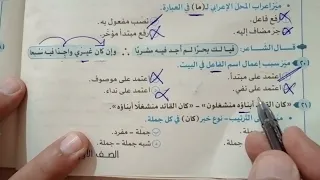 ميز إعراب المحل الإعرابي لـ(ما) في العبارة.
رفع فاعل.
نصب مفعول به.
جر مضاف إليه.
رفع مبتدأ مؤخر.
قال الشاعر: فيا لك بحرًا لم أجد فيه مشربًا وإن كان غيري واجدًا فيه مسبحا
ميز سبب إعمال اسم الفاعل في البيت.
اعتمد على مبتدأ.
اعتمد على موصوف.
اعتمد على نفي.
اعتمد على نداء.
(٢١) «كان القائد أبناؤه منشغلون» – «كان القائد منشغلًا أبناؤه».
الترتيب - نوع خبر (كان) في كل جملة.
جملة - مفرد.
شبه جملة - جملة.
الصف